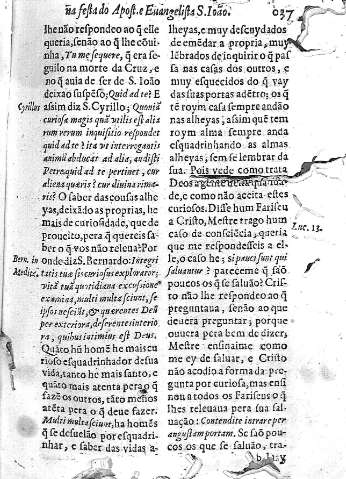 na festa do Apost. e Euangelista S. Ioão.
037
lhe não respondeo ao q̃ elle
queria, senão ao q̃ lhe cõui-
nha, Tu me sequere, q̃ era se-
guilo na morte da Cruz, e no
no q̃ auia de ser de S. Ioão
deixao suspẽso; Quid ad te? E
assim diz S. Cyrillo; Quoniã
curiosa magis quã vtilis est alia
rum rerum inquisitio respondet
quid ad te? ita vt interrogantis
animũ abducat ad alia, audisti
Petre quid ad te pertinet, cur
aliena quæris? cur diuina rima-
ris? O saber das cousas alhe
yas, deixãdo as proprias, he
mais de curiosidade, que de
proueito, pera q̃ quereis sa-
ber o q̃ vos não releua? Por
onde diz S. Bernardo: Integri
tatis tuæ sis curiosus explorator;
vitã tuã quotidiana excusione
examina, multi multa sciunt, se
ipsos nesciũt, & quærentes Deũ
per exteriora, deserente interio
ra, quibus intimus est Deus.
Quãto hũ homẽ he mais cu
rioso esquadrinhador de sua
vida, tanto he mais santo, e
quãto mais atenta pera o q̃
fazẽ os outros, tãto menos
atẽta pera o q̃ deue fazer.
Multi multa sciunt, ha homẽs
q̃ se desuelão por esquadri-
nhar, e saber das vidas a-
Cyrillus
Bern. in
Medite.
lheyas, e muy descuydados
de emẽdar a propria, muy
lẽbrados de inquirir o q̃ pas
sa nas casas dos outros, e
muy esquecidos do q̃ vay
das suas portas adẽtro; os q̃
tẽ roym casa sempre andão
nas alheyas, assim que tem
roym alma sempre anda
esquadrinhando as almas
alheyas, sem se lembrar da
sua. Pois vede como trata
Deos a gente
de, e como não aceita estes
curiosos. Disse hum Fariseu
a Cristo, Mestre trago hum
caso de consciẽcia, queria
que me respondesseis a el-
le, o caso he; si pauci sunt qui
saluantur? pareceme q̃ são
poucos os q̃ se saluão? Cris-
to não lhe respondeo ao q̃
preguntaua, senão ao que
deuera preguntar; porque
ouuera pera bem de dizer,
Mestre ensinaime como
me ey de saluar, e Cristo
não acodio a forma da pre-
gunta por curiosa, mas ensi
nou a todos os Fariseus o q̃
lhes releuaua pera sua sal-
uação: Contendite intrare per
angustam portam. Se são pou
cos os que se saluão, tra-
Luc. 13.